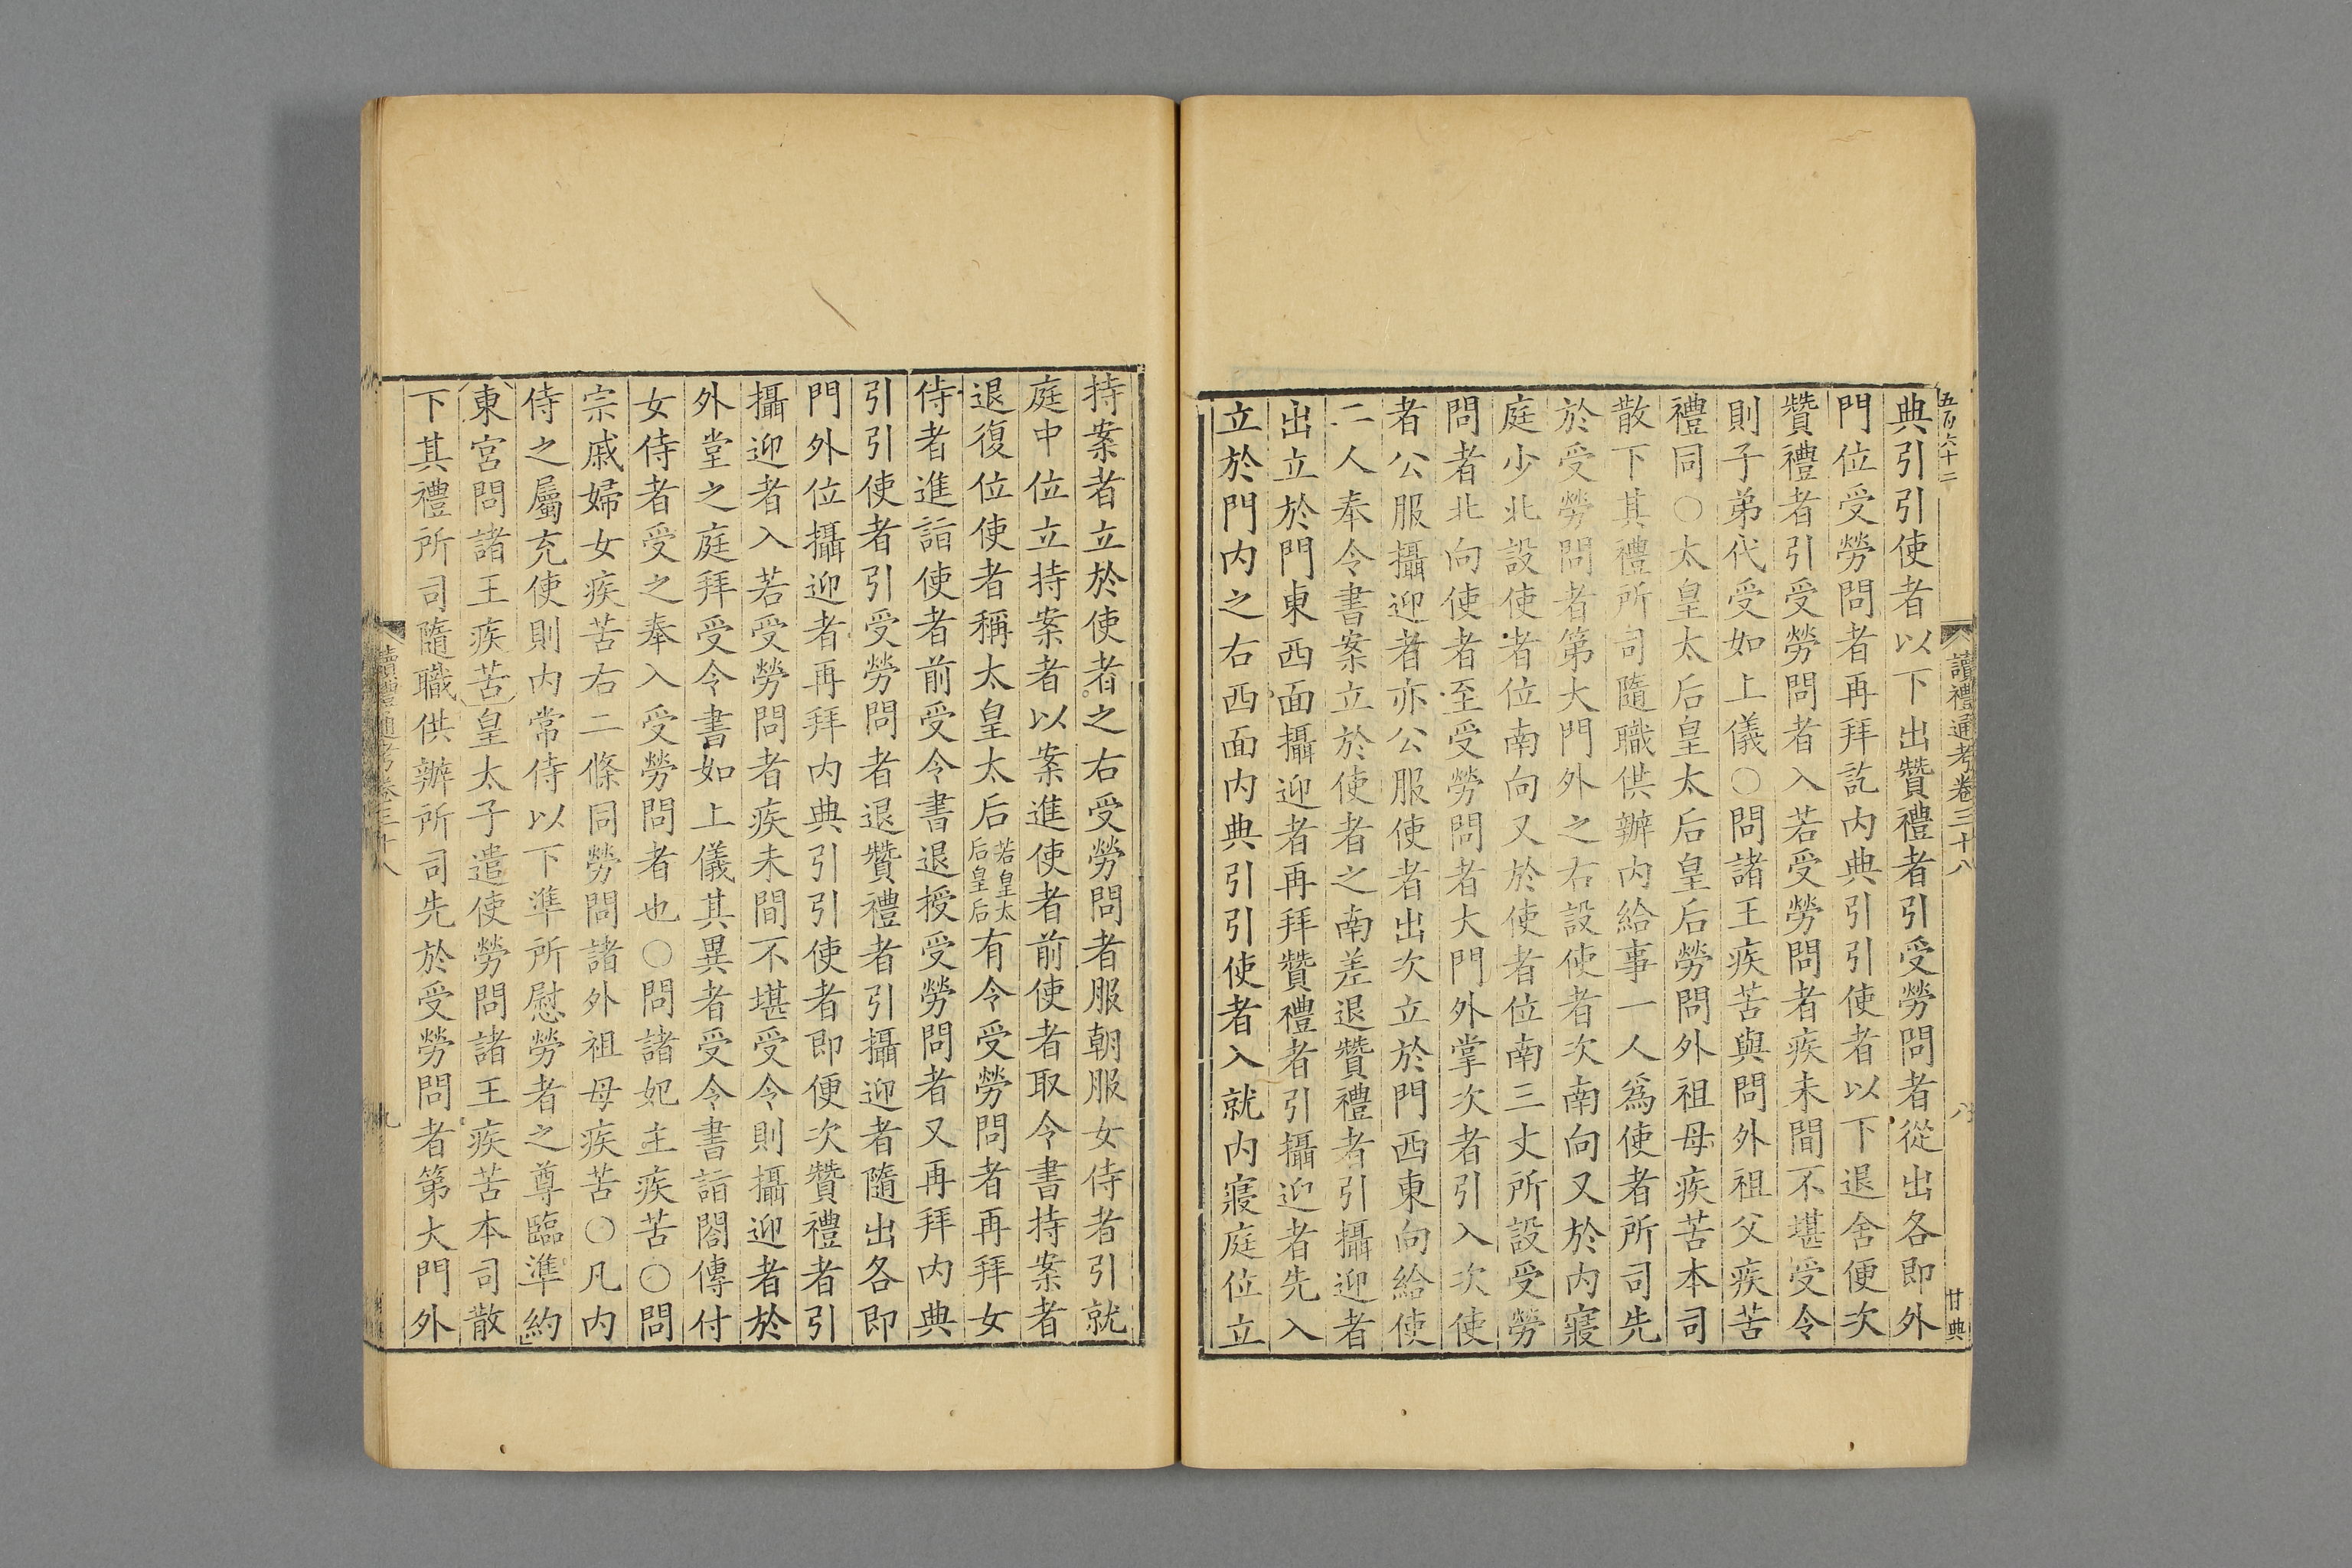 五百六十二
讀禮通考卷三十八
八
甘典
典引引使者以下出贊禮者引受勞問者從出各即外
門位受勞問者再拜訖内典引引使者以下退舍便次
贊禮者引受勞問者入若受勞問者疾未間不堪受令
則子弟代受如上儀○問諸王疾苦與問外祖父疾苦
禮同○太皇太后皇太后皇后勞問外祖母疾苦本司
散下其禮所司隨職供辦内給事一人爲使者所司先
於受勞問者第大門外之右設使者次南向又於内寢
庭少北設使者位南向又於使者位南三丈所設受勞
問者北向使者至受勞問者大門外掌次者引入次使
者公服攝迎者亦公服使者出次立於門西東向給使
二人奉令書案立於使者之南差退贊禮者引攝迎者
出立於門東西面攝迎者再拜贊禮者引攝迎者先入
立於門内之右西面内典引引使者入就内寢庭位立
持案者立於使者之右受勞問者服朝服女侍者引就
庭中位立持案者以案進使者前使者取令書持案者
退復位使者稱太皇太后若皇太后皇后有令受勞問者再拜女
侍者進詣使者前受令書退授受勞問者又再拜内典
引引使者引受勞問者退贊禮者引攝迎者隨出各即
門外位攝迎者再拜内典引引使者即便次贊禮者引
攝迎者入若受勞問者疾未間不堪受令則攝迎者於
外堂之庭拜受令書如上儀其異者受令書詣閤傳付
女侍者受之奉入受勞問者也○問諸妃主疾苦○問
宗戚婦女疾苦右二條同勞問諸外祖母疾苦○凡内
侍之屬充使則内常侍以下準所慰勞者之尊臨準約
東宮問諸王疾苦皇太子遣使勞問諸王疾苦本司散
下其禮所司隨職供辦所司先於受勞問者第大門外
讀禮通考卷三十八
九